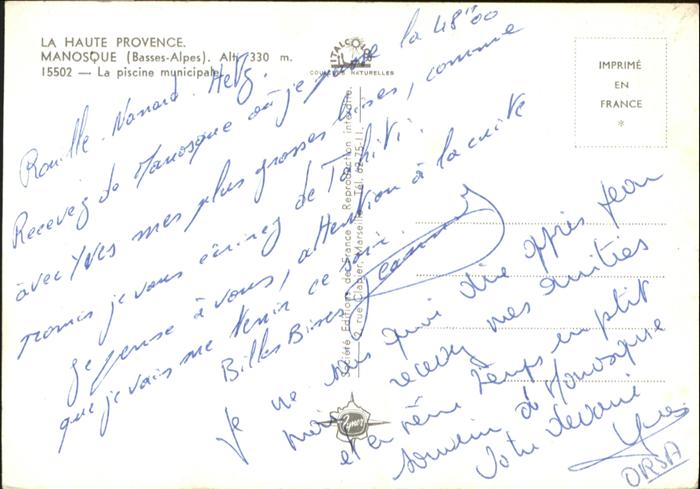 LA HAUTE PROVENCE.
MANOSQUE (Basses-Alpes). Alt. 330 m.
15502 — La piscine municipale.
ITALCOLOR
COULEURS NATURELLES
IMPRIMÉ
EN
FRANCE
*
Société Editions de France Reproduction interdite.
2, rue Clapier, Marseille Tél. 62-75-11.
Rouille. Nanard.
Recevez de Manosque où je passe la 48"00
avec Yves mes plus grosses bises, comme
promis je vous écrirez de Tahiti.
Je pense à vous, attention à la cuite
que je vais me tenir ce soir.
Billes Bises Jeannot
Je ne sais quoi dire après Jean
mais recevez mes amitiés
et en même temps un ptit
souvenir de Manosque
Votre dévoué
Yves
ORSA